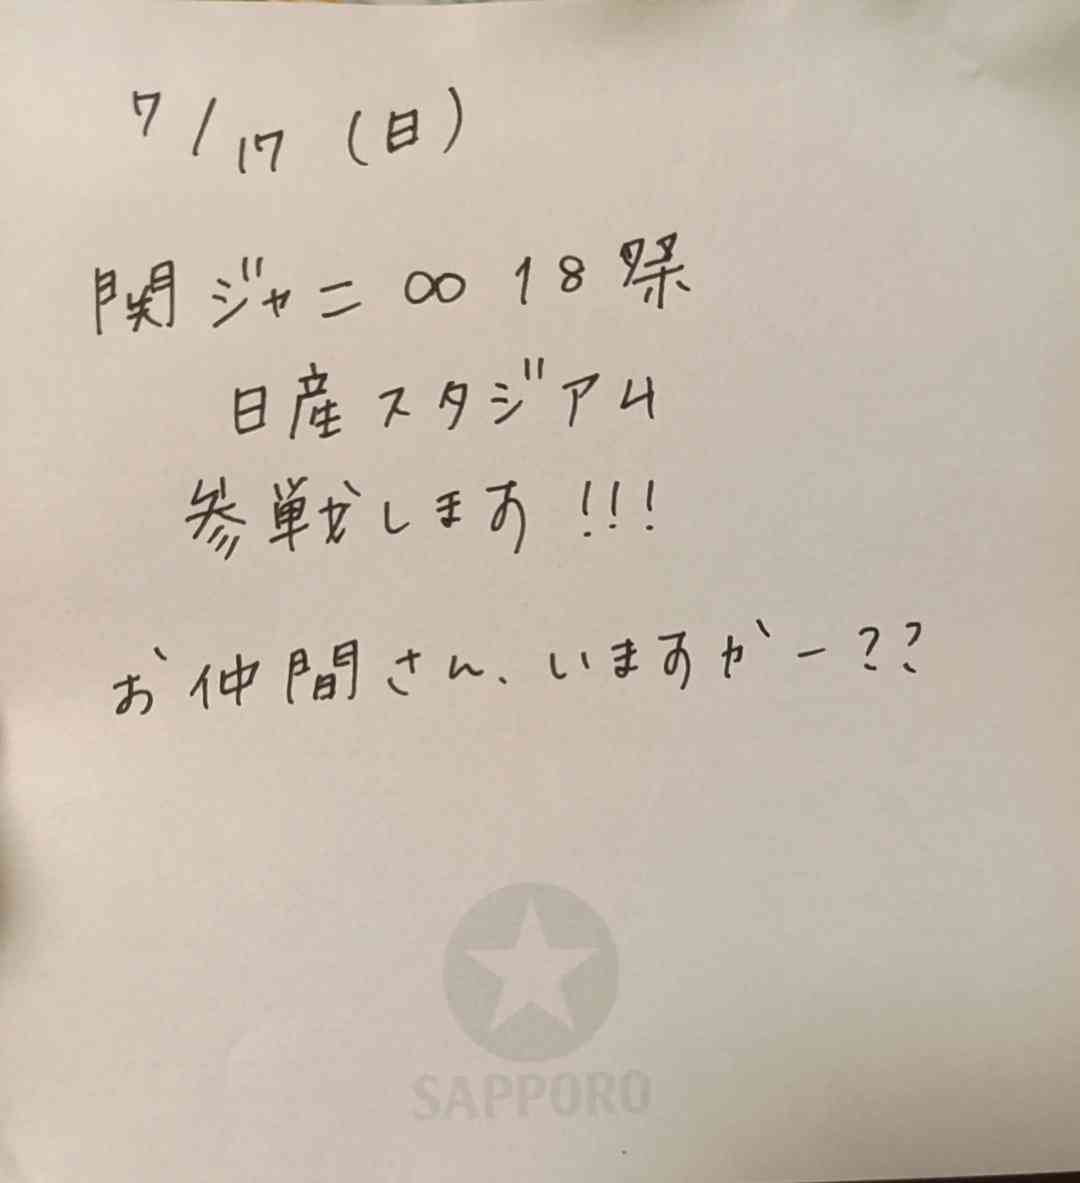 7/17 (日)
関ジャニ∞ 18祭
日産スタジアム
参戦します!!!
お仲間さん、いますかー??
SAPPORO